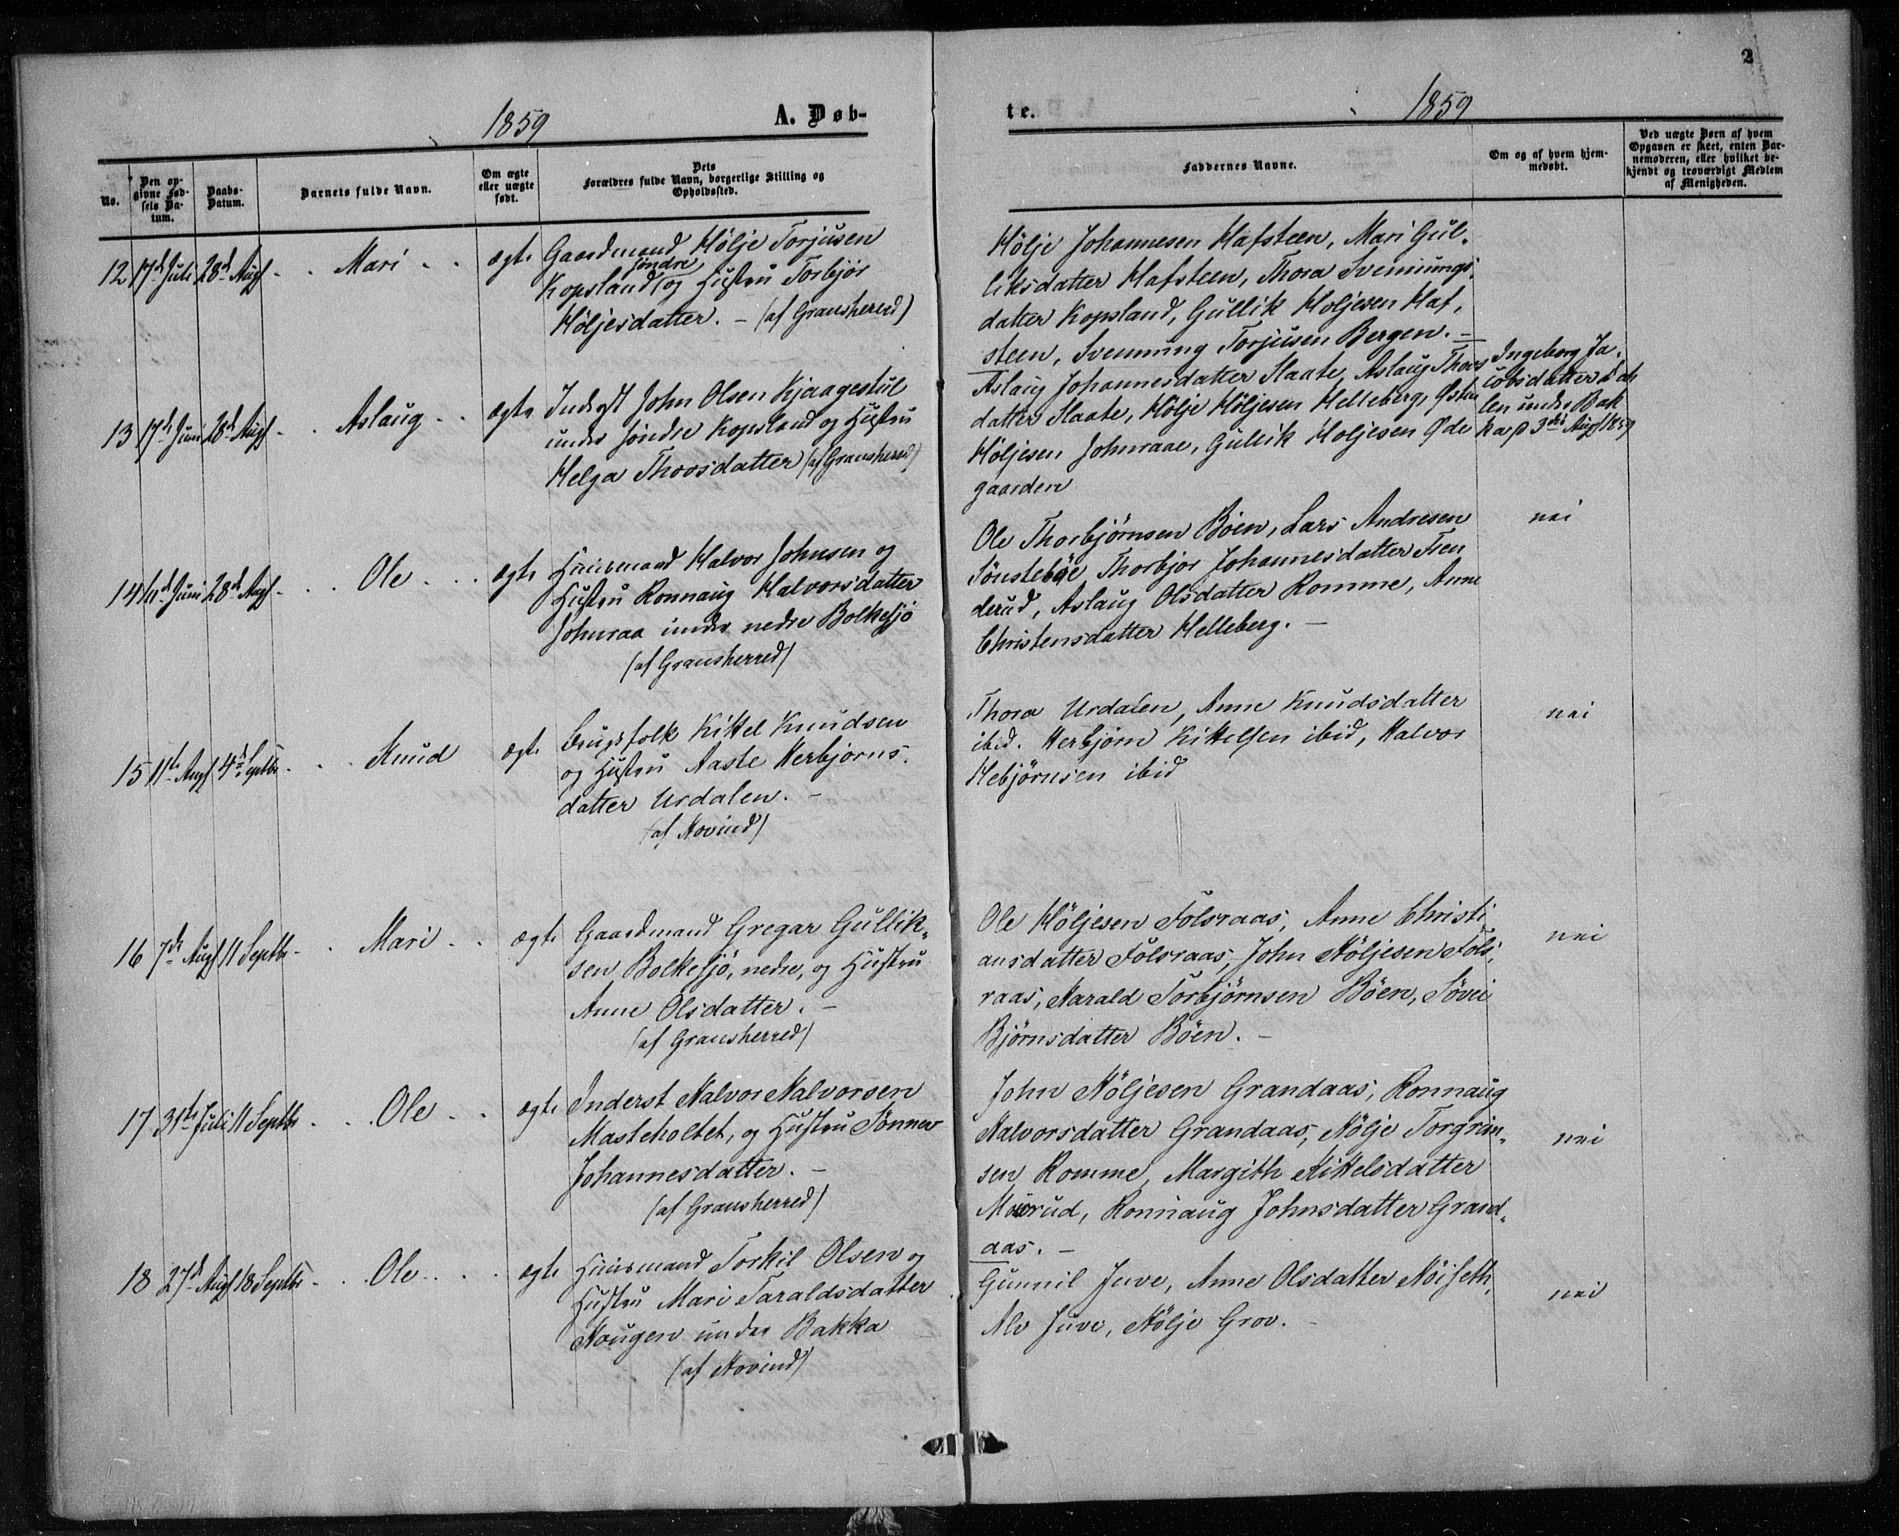 2
1859
A. Døb-
te.
1859
No.
Den op-
givne Fød-
sels Da-
tum.
Daabs-
Datum.
Barnets fulde Navn.
Om ægte
eller uægte
født.
Dets
Forældres fulde Navn, borgerlige Stilling og
Opholdssted.
Faddernes Navne.
Om og af hvem hjem-
medøbt.
Ved uægte Børn af hvem
Opgaven er skeet, enten Bar-
nemoderen, eller hvilket be-
kjendt og troværdigt Medlem
af Menigheden.
12 17de Juli 28de Augs - . . Mari . . ægte
Gaardmand Hølje Torjusen
søndre
Kopsland og Hustru Torbjør
Høljesdatter. - (af Gransherred)
Hølje Johannesen Hafsteen, Mari Gul-
liksdatter Hafsteen, Thora Svennungs-
datter Kopsland, Gullik Holjesen Haf-
steen, Svennung Torjusen Bergen. -
13 17de Juni 28de Augs - . . Aslaug . . ægte
Inderst John Olsen Kjaagestul
under søndre Kopsland og Hustru
Helga Thovsdatter (af Gransherred)
Aslaug Johannesdatter Slaate, Aslaug Thovs
datter Slaate, Hølje Høljesen Helleberg, Østen
Høljesen Johnraae, Gullik Holjesen Øde
gaarden
Ingeborg Ja-
cobsdatter Da
len under Bak
ka p 3die Augs 1859
14 11de Juni 28de Augs - . . Ole . . . ægte
Huusmand Halvor Johnsen og
Hustru Ronnaug Halvorsdatter
Johnraa under nedre Bolkesjø
(af Gransherred)
Ole Thorbjørnsen Böen, Lars Andresen
Sønstebøe, Thorbjør Johannesdatter Tren
derud, Aslaug Olsdatter Romme, Anne
Christensdatter Helleberg. -
nei
15 11te Augs 4de Septbr - . . Knud ægte
Brugsfolk Kittel Knudsen
og Hustru Aaste Herbjørns-
datter Urdalen. -
(af Hovind)
Thora Urdalen, Anne Knudsdatter
ibid. Herbjørn Kittelsen ibid, Halvor
Hebjørnsen ibid
nei
16 7de Augs 11 Septbr - . Mari . . ægte
Gaardmand Gregar Gullik-
sen Bolkesjö, nedre, og Hustru
Anne Olsdatter. -
(af Gransherred)
Ole Höljesen Folsraas, Anne Christi
ansdatter Folsraas, John Höljesen Fols-
raas, Harald Torbjørnsen Böen, Søvei
Bjørnsdatter Böen. -
nei
17 31te Juli 11 Septbr . . . Ole . . ægte
Inderst Halvor Halvorsen
Masteholtet, og Hustru Sønnev
Johannesdatter. -
(af Gransherred)
John Höljesen Grandaas, Ronnaug
Halvorsdatter Grandaas, Hölje Torgrim-
sen Romme, Margith Kittelsdatter
Moerud, Ronnaug Johnsdatter Grand-
aas. -
nei
18 27de Augs 18 Septbr - . . Ole . . . ægte
Huusmand Torkil Olsen og
Hustru Mari Taraldsdatter
Haugen under Bakka
(af Hovind)
Gunnil Juve, Anne Olsdatter Höiseth,
Alv Juve, Hölje Grov. -
nei